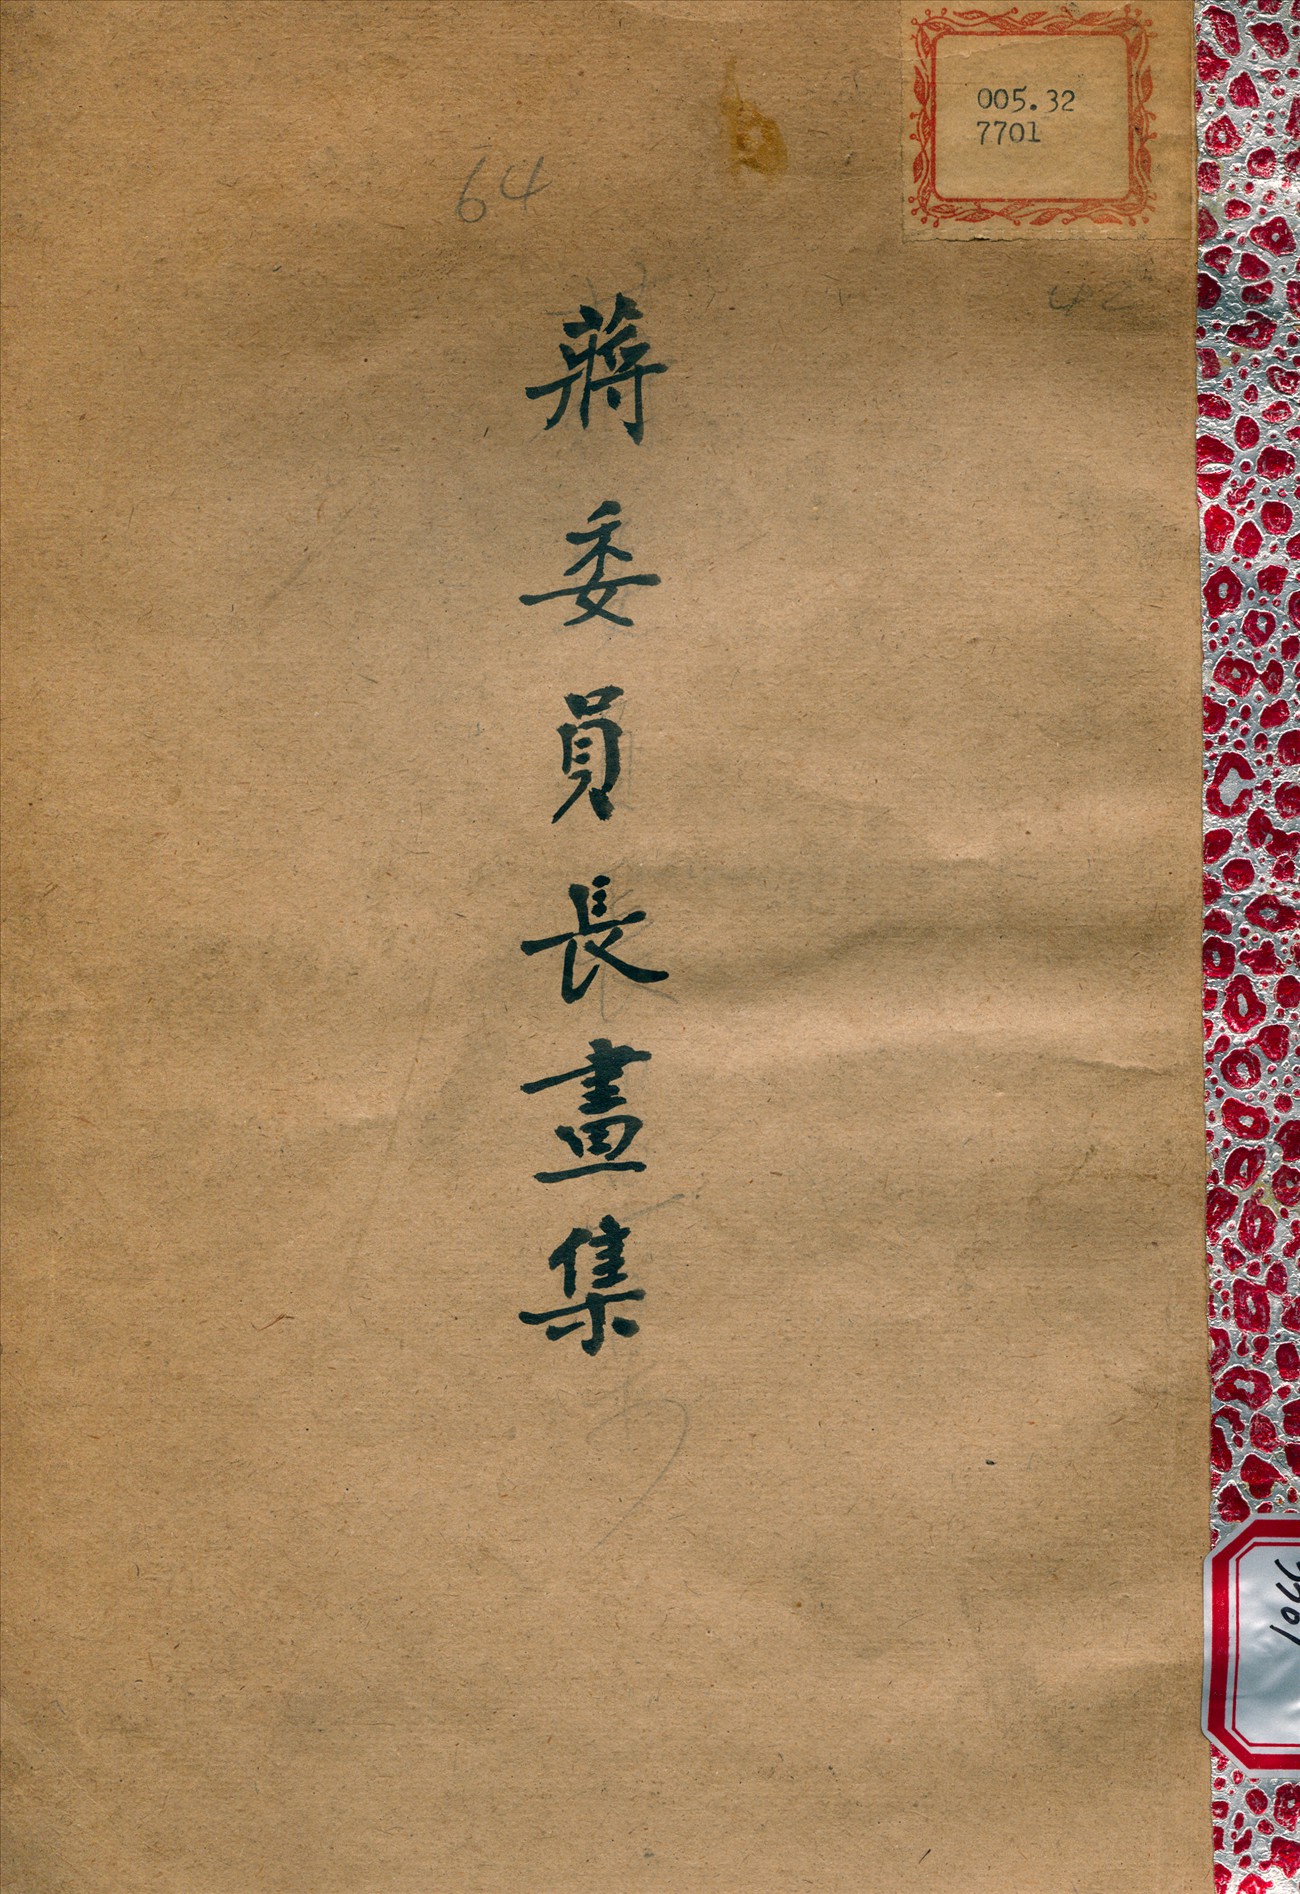 005.32
7701
64
42
蔣委員長畫集
1066